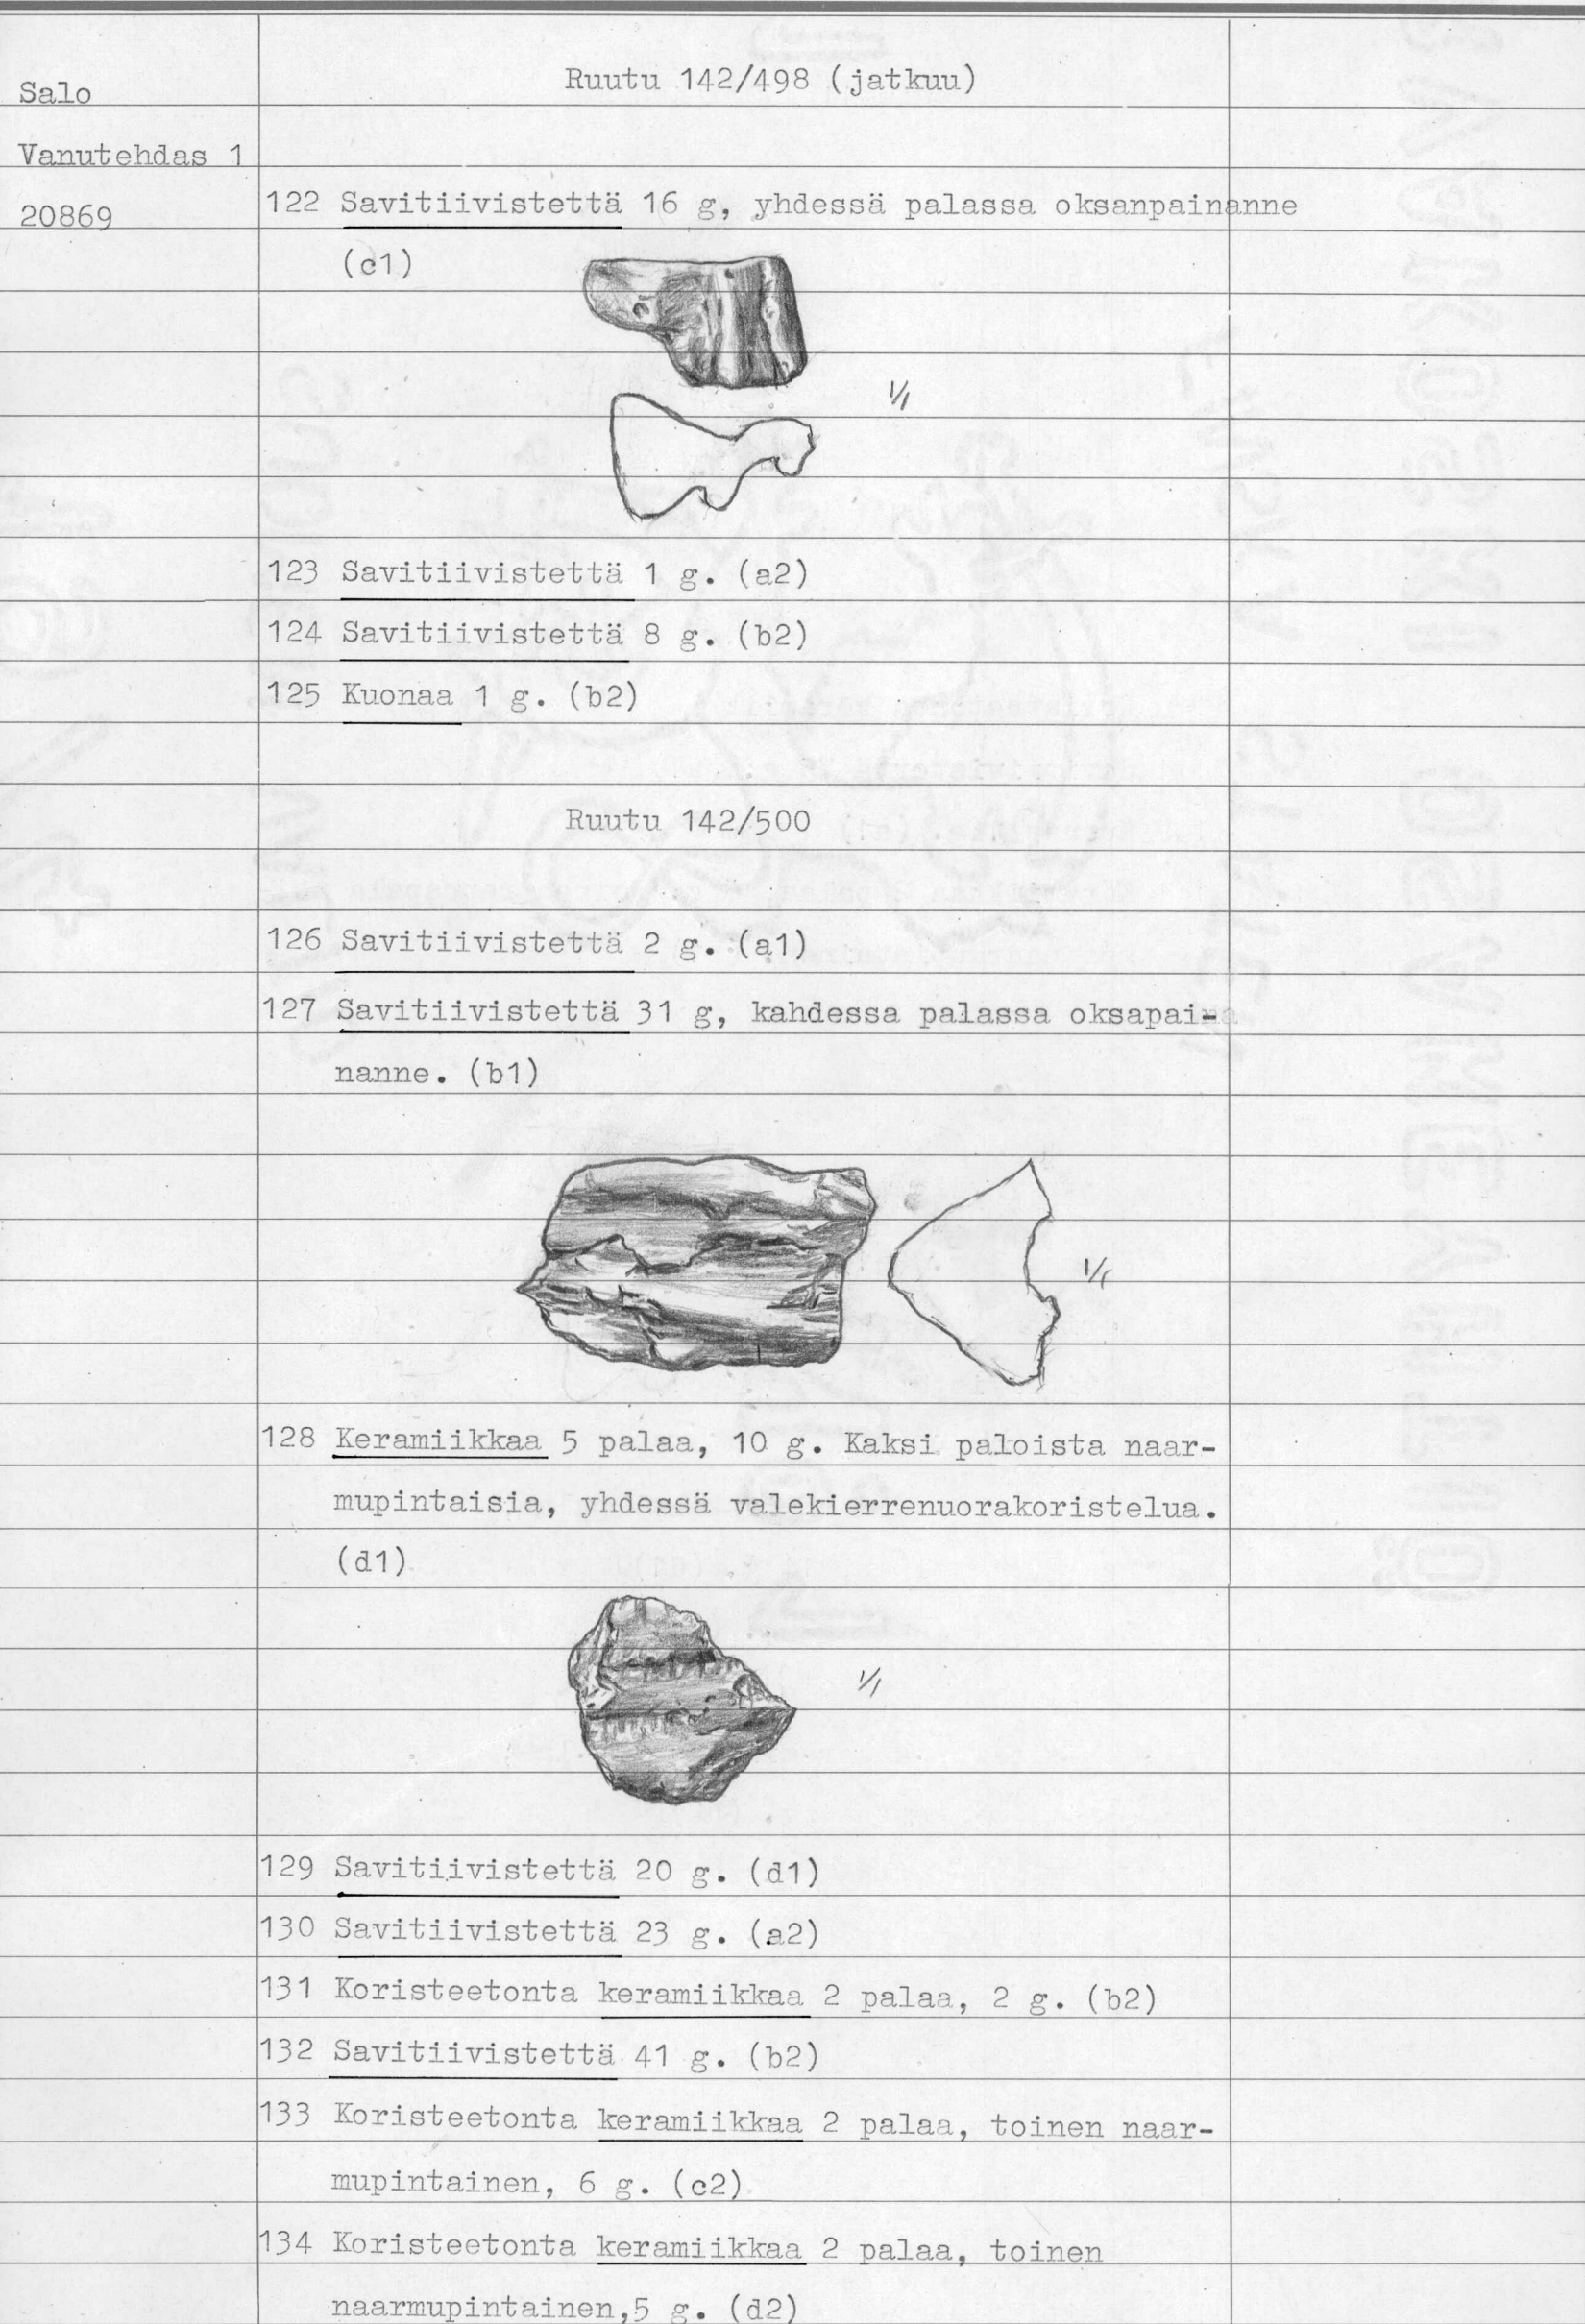 Salo
Ruutu 142/498 (jatkuu)
Vanutehdas 1
20869
122 Savitiivistettä 16 g, yhdessä palassa oksanpainanne
(c1)
1/1
123 Savitiivistettä 1 g. (a2)
124 Savitiivistettä 8 g. (b2)
125 Kuonaa 1 g. (b2)
Ruutu 142/500
126 Savitiivistettä 2 g. (a1)
127 Savitiivistettä 31 g, kahdessa palassa oksapai-
nanne. (b1)
1/1
128 Keramiikkaa 5 palaa, 10 g. Kaksi paloista naar-
mupintaisia, yhdessä valekierrenuorakoristelua.
(d1)
1/1
129 Savitiivistettä 20 g. (d1)
130 Savitiivistettä 23 g. (a2)
131 Koristeetonta keramiikkaa 2 palaa, 2 g. (b2)
132 Savitiivistettä 41 g. (b2)
133 Koristeetonta keramiikkaa 2 palaa, toinen naar-
mupintainen, 6 g. (c2)
134 Koristeetonta keramiikkaa 2 palaa, toinen
naarmupintainen,5 g. (d2)